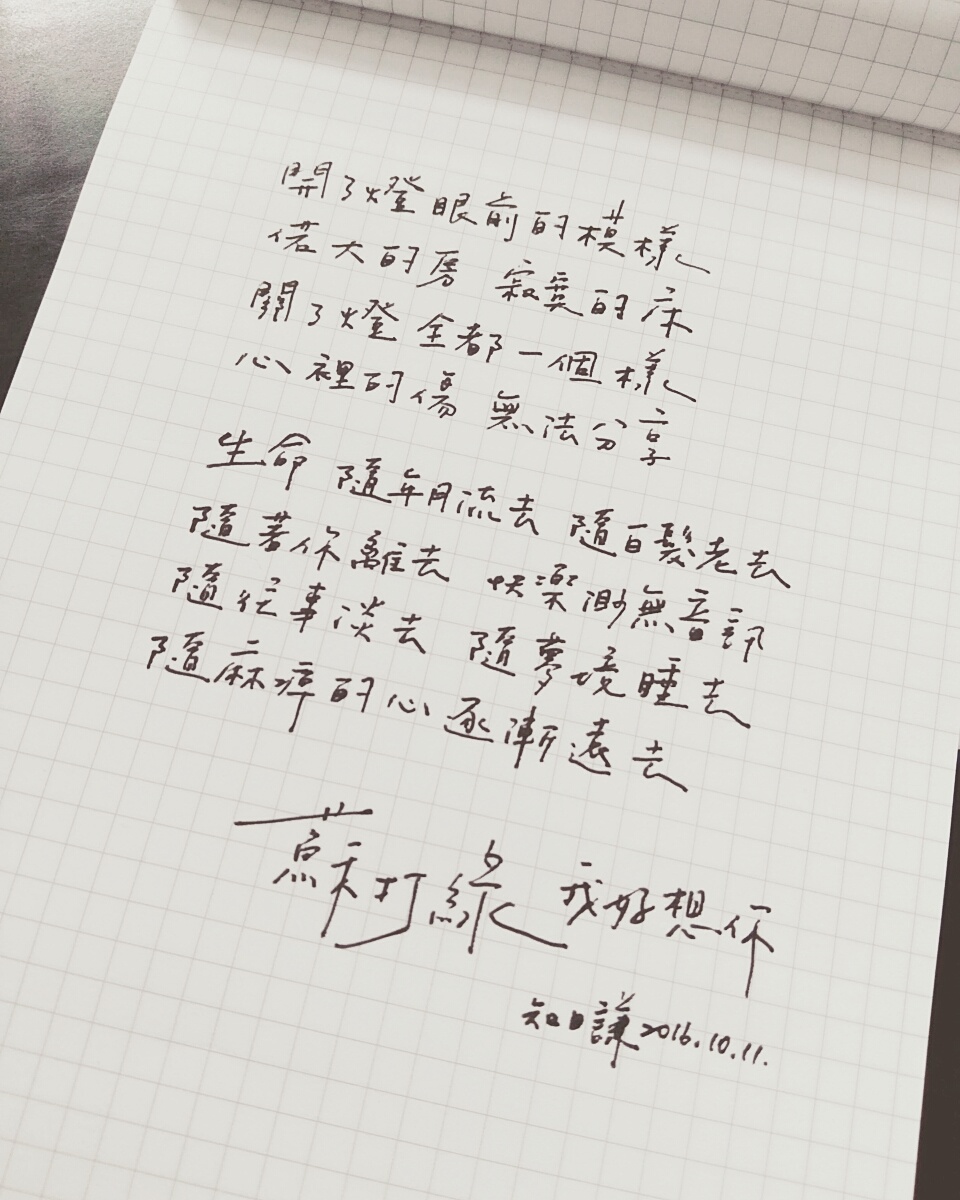 開了燈 眼前的模樣
偌大的房 寂寞的床
關了燈 全都一個樣
心裡的傷 無法分享
生命 隨年月流去 隨白髮老去
隨著你離去 快樂渺無音訊
隨往事淡去 隨夢境睡去
隨麻痺的心逐漸遠去
蘇打綠 我好想你
知日謙 2016.10.11.